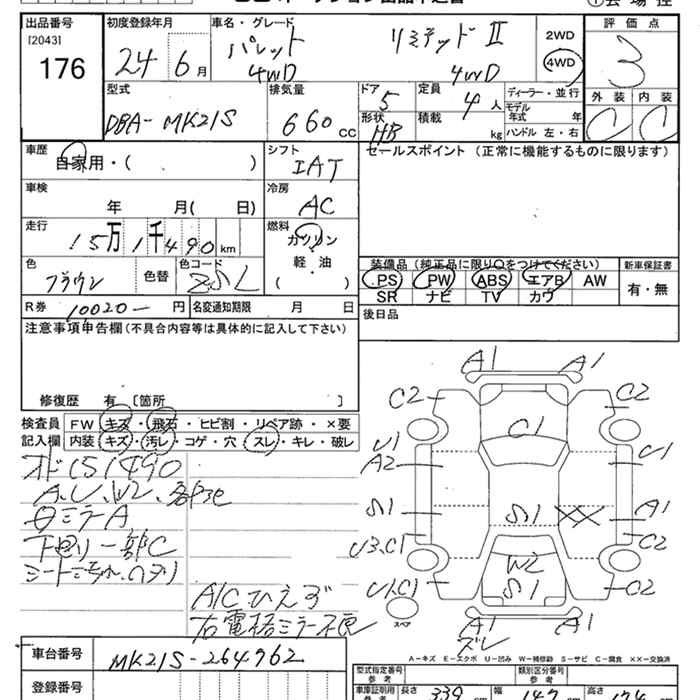 出品番号 初度登録年月 車名・グレード 評価点
[2043] パレット リミテッドⅡ 2WD 3
176 24 6月 4WD 4WD 4WD 外装 内装
C C
型式 排気量 ドア 5 定員 4人 ディーラー・並行
DBA-MK21S 660cc 形状 HB 積載 kg モデル年式 年
ハンドル 左・右
車歴 自家用・( ) シフト IAT セールスポイント (正常に機能するものに限ります)
車検 年 月( 日) 冷房 AC
走行 15万1千490km 燃料 ガソリン
軽・油
( )
色 ブラウン 色替 色コード ZSL
装備品(純正品に限り○をつけてください) 新車保証書
PS PW ABS エアB AW 有・無
SR ナビ TV カワ
R券 10020-円 名変通知期限 月 日 後日品
注意事項申告欄(不具合内容等は具体的に記入して下さい)
修復歴 有 [箇所 ]
検査員 FW キズ・飛石・ヒビ割・リペア跡・×要
記入欄 内装 キズ・汚レ・コゲ・穴・スレ・キレ・破レ
オド151490
A、U、W2、各部色
日ミラーA
下回り一部C
A/Cひえず
右電格ミラー不良
A1 A1
C2 C2
C1
U1 U1
A2
S1 S1 XX A1
U3.C1 C2
W2
U1.C1 S1 C2
スペア
A1 A1
ズレ
A-キズ E-エクボ U-凹み W-補修跡 S-サビ C-腐食 XX-交換済
車台番号 MK21S-264962
登録番号
型式指定番号 類別区分番号
車庫証明用参考 長さ 339 幅 147 高さ 174